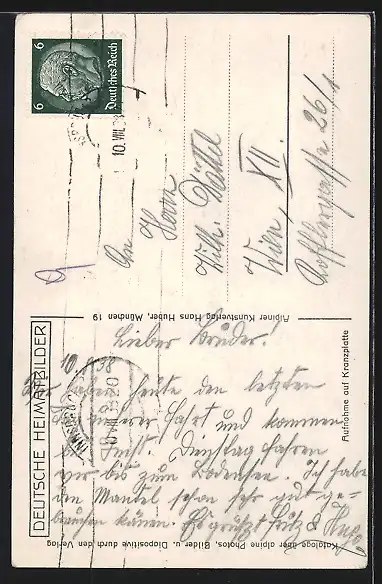 DEUTSCHE HEIMATBILDER
Alpiner Kunstverlag Hans Huber, München 19
Aufnahme auf Kranzplatte
Kataloge über alpine Photos, Bilder, u. Diapositive durch den Verlag
6 6
Deutsches Reich
10.VIII.38
An
Herrn
Wilh.
Wien, XII.
26/1
10. 38
Lieber Bruder!
Wir haben heute den letzten
unserer Fahrt und kommen
bis Dienstag fahren
wir bis zum Bodensee. Ich habe
den Mantel schon sehr gut ge-
brauchen können. Es grüsst Fritz &